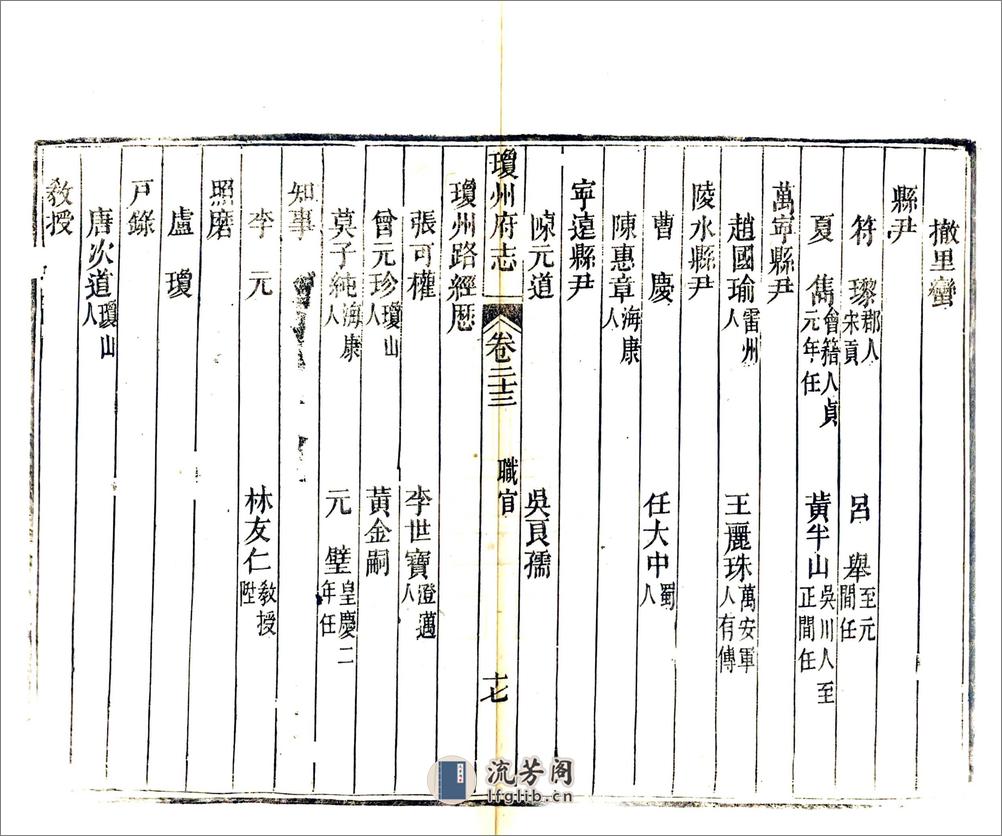 撤里蠻
縣尹
符　瓈 郡人宋貢　呂　舉 至元間任
夏　雋 會籍人貞元年任　黃半山 吳川人至正間任
萬寧縣尹
趙國瑜 雷州人　王麗珠 萬安軍人有傳
陵水縣尹
曹　慶　任大中 蜀人
陳惠章 海康人
寧遠縣尹
陳元道　吳頁孺
瓊州府志　卷二十三　職官　十七
瓊州路經歷
張可權　李世寶 澄邁人
曾元珍 瓊山人　黃金嗣
莫子純 海康人　元　璧 皇慶二年任
知事
李　元　林友仁 教授陞
照磨
盧　瓊
戸錄
唐次道 瓊山人
教授
流芳阁
lfglib.cn